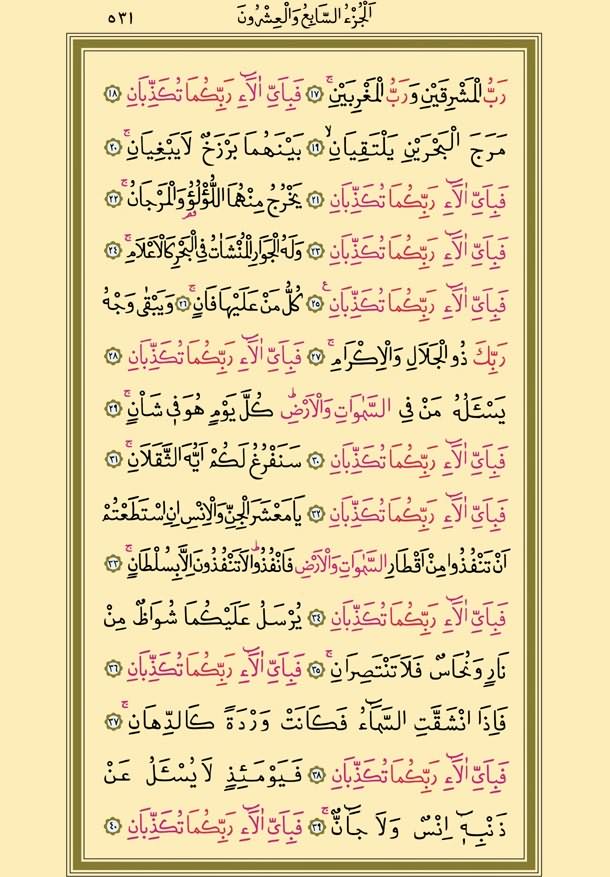 اَلْجُزْءُ السَّابِعُ وَالْعِشْرُونَ
٥٣١
رَبُّ الْمَشْرِقَيْنِ وَرَبُّ الْمَغْرِبَيْنِۚ ﴿١٧﴾ فَبِاَيِّ اٰلَٓاءِ رَبِّكُمَا تُكَذِّبَانِ ﴿١٨﴾
مَرَجَ الْبَحْرَيْنِ يَلْتَقِيَانِۙ ﴿١٩﴾ بَيْنَهُمَا بَرْزَخٌ لَا يَبْغِيَانِۚ ﴿٢٠﴾
فَبِاَيِّ اٰلَٓاءِ رَبِّكُمَا تُكَذِّبَانِ ﴿٢١﴾ يَخْرُجُ مِنْهُمَا اللُّؤْلُؤُ۬ وَالْمَرْجَانُۚ ﴿٢٢﴾
فَبِاَيِّ اٰلَٓاءِ رَبِّكُمَا تُكَذِّبَانِ ﴿٢٣﴾ وَلَهُ الْجَوَارِ الْمُنْشَاٰتُ فِي الْبَحْرِ كَالْاَعْلَامِۚ ﴿٢٤﴾
فَبِاَيِّ اٰلَٓاءِ رَبِّكُمَا تُكَذِّبَانِ۟ ﴿٢٥﴾ كُلُّ مَنْ عَلَيْهَا فَانٍۚ ﴿٢٦﴾ وَيَبْقٰى وَجْهُ
رَبِّكَ ذُو الْجَلَالِ وَالْاِكْرَامِۚ ﴿٢٧﴾ فَبِاَيِّ اٰلَٓاءِ رَبِّكُمَا تُكَذِّبَانِ ﴿٢٨﴾
يَسْـَٔلُهُ مَنْ فِي السَّمٰوَاتِ وَالْاَرْضِۜ كُلَّ يَوْمٍ هُوَ ف۪ي شَأْنٍۚ ﴿٢٩﴾
فَبِاَيِّ اٰلَٓاءِ رَبِّكُمَا تُكَذِّبَانِ ﴿٣٠﴾ سَنَفْرُغُ لَكُمْ اَيُّهَ الثَّقَلَانِۚ ﴿٣١﴾
فَبِاَيِّ اٰلَٓاءِ رَبِّكُمَا تُكَذِّبَانِ ﴿٣٢﴾ يَا مَعْشَرَ الْجِنِّ وَالْاِنْسِ اِنِ اسْتَطَعْتُمْ
اَنْ تَنْفُذُوا مِنْ اَقْطَارِ السَّمٰوَاتِ وَالْاَرْضِ فَانْفُذُواۜ لَا تَنْفُذُونَ اِلَّا بِسُلْطَانٍۚ ﴿٣٣﴾
فَبِاَيِّ اٰلَٓاءِ رَبِّكُمَا تُكَذِّبَانِ ﴿٣٤﴾ يُرْسَلُ عَلَيْكُمَا شُوَاظٌ مِنْ
نَارٍ وَنُحَاسٌ فَلَا تَنْتَصِرَانِۚ ﴿٣٥﴾ فَبِاَيِّ اٰلَٓاءِ رَبِّكُمَا تُكَذِّبَانِ ﴿٣٦﴾
فَاِذَا انْشَقَّتِ السَّمَٓاءُ فَكَانَتْ وَرْدَةً كَالدِّهَانِۚ ﴿٣٧﴾
فَبِاَيِّ اٰلَٓاءِ رَبِّكُمَا تُكَذِّبَانِ ﴿٣٨﴾ فَيَوْمَئِذٍ لَا يُسْـَٔلُ عَنْ
ذَنْبِه۪ٓ اِنْسٌ وَلَا جَٓانٌّۚ ﴿٣٩﴾ فَبِاَيِّ اٰلَٓاءِ رَبِّكُمَا تُكَذِّبَانِ ﴿٤٠﴾